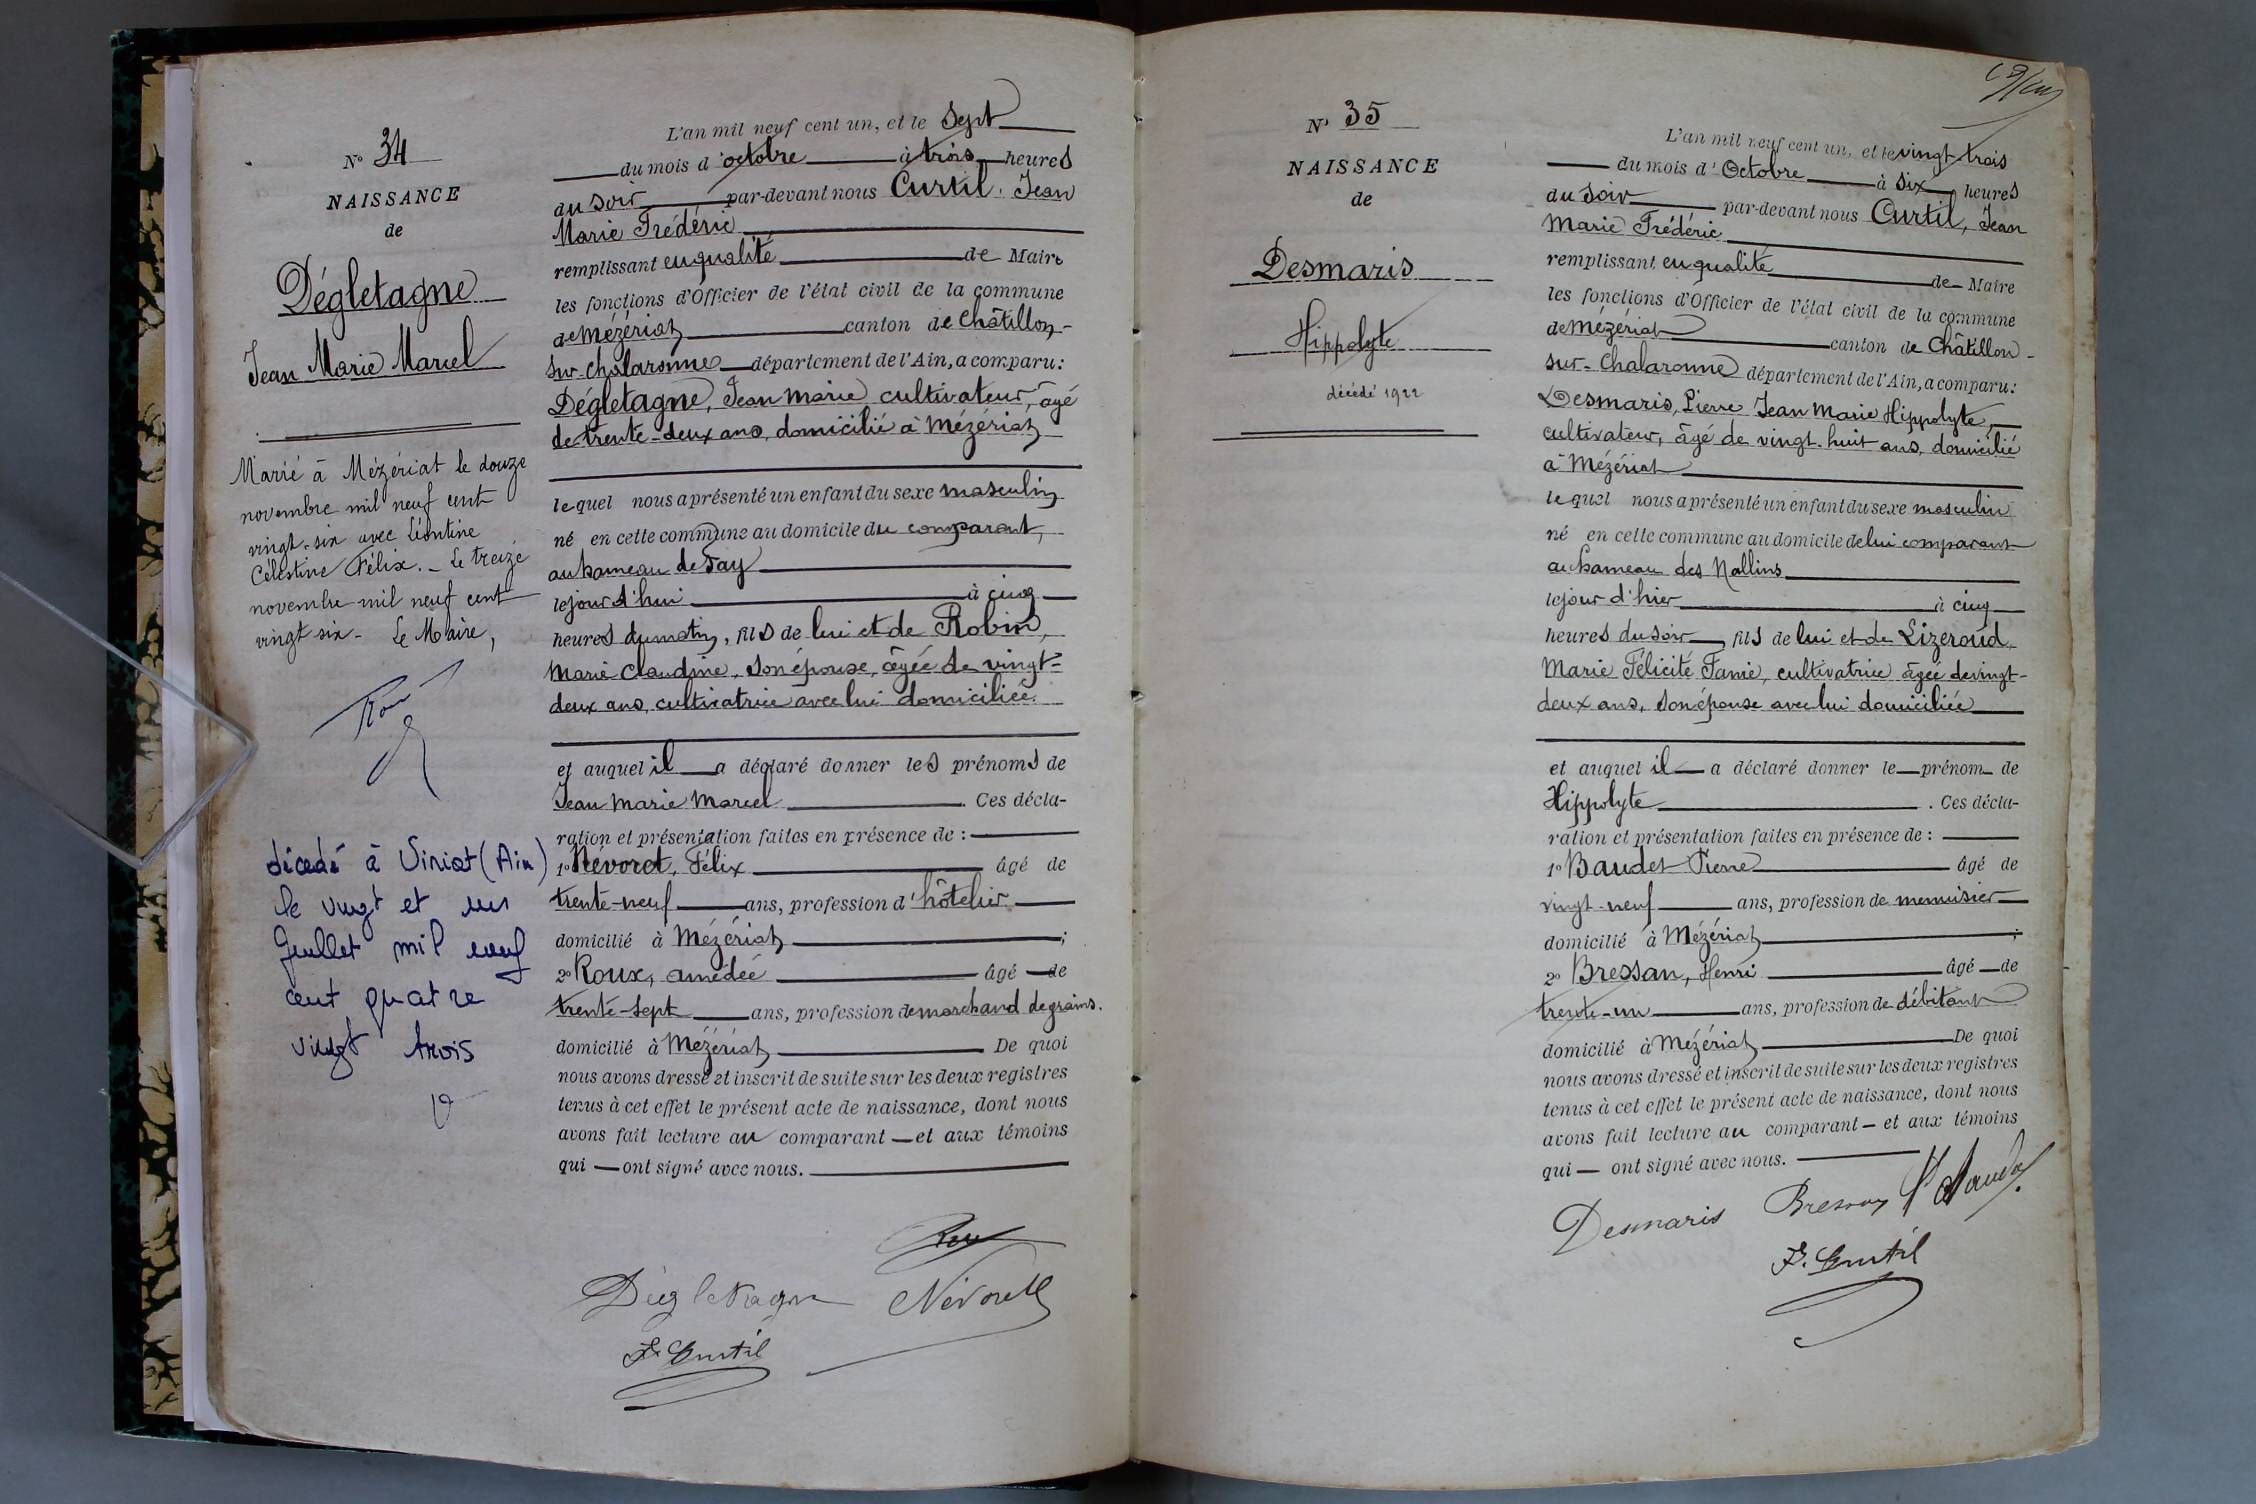 N° 34
NAISSANCE
de
Dégletagne
Jean Marie Marcel
Marié à Mézériat le douze
novembre mil neuf cent
vingt-six avec Léontine
Célestine Félix. - Le treize
novembre mil neuf cent
vingt six - Le Maire,
décédé à Viriat (Ain)
le vingt et un
Juillet mil neuf
cent quatre
vingt trois
L'an mil neuf cent un, et le Sept
du mois d'octobre à trois heures
du soir par-devant nous Curtil, Jean
Marie Frédéric
remplissant en qualité de Maire
les fonctions d'Officier de l'état civil de la commune
de Mézériat canton de Châtillon-
sur-Chalaronne département de l'Ain, a comparu:
Dégletagne, Jean Marie cultivateur, âgé
de trente-deux ans, domicilié à Mézériat
lequel nous a présenté un enfant du sexe masculin
né en cette commune au domicile du comparant,
au hameau de Fay
le jour d'hui à cinq
heures du matin, fils de lui et de Robin,
Marie Claudine, son épouse, âgée de vingt-
deux ans, cultivatrice avec lui domiciliée.
et auquel il a déclaré donner les prénoms de
Jean Marie Marcel. Ces décla-
ration et présentation faites en présence de :
1° Névoret, Félix âgé de
trente-neuf ans, profession d'hôtelier
domicilié à Mézériat ;
2° Roux, Amédée âgé de
trente-sept ans, profession de marchand de grains.
domicilié à Mézériat De quoi
nous avons dressé et inscrit de suite sur les deux registres
tenus à cet effet le présent acte de naissance, dont nous
avons fait lecture au comparant et aux témoins
qui ont signé avec nous.
Roux
Dégletagne Névoret
F. Curtil
N° 35
NAISSANCE
de
Desmaris
Hippolyte
décédé 1922
L'an mil neuf cent un, et le vingt-trois
du mois d'Octobre à six heures
du soir par-devant nous Curtil, Jean
Marie Frédéric
remplissant en qualité de Maire
les fonctions d'Officier de l'état civil de la commune
de Mézériat canton de Châtillon-
sur-Chalaronne département de l'Ain, a comparu:
Desmaris, Pierre Jean Marie Hippolyte,
cultivateur, âgé de vingt-huit ans, domicilié
à Mézériat
lequel nous a présenté un enfant du sexe masculin
né en cette commune au domicile de lui comparant
au hameau des Nallins
le jour d'hier à cinq
heures du soir, fils de lui et de Lizeroud
Marie Félicité Fanie, cultivatrice âgée de vingt-
deux ans, son épouse avec lui domiciliée
et auquel il a déclaré donner le prénom de
Hippolyte. Ces décla-
ration et présentation faites en présence de :
1° Baudet Pierre âgé de
vingt-neuf ans, profession de menuisier
domicilié à Mézériat ;
2° Bressan, Henri âgé de
trente-un ans, profession de débitant
domicilié à Mézériat De quoi
nous avons dressé et inscrit de suite sur les deux registres
tenus à cet effet le présent acte de naissance, dont nous
avons fait lecture au comparant et aux témoins
qui ont signé avec nous.
Desmaris Bressan P Baudet
F. Curtil